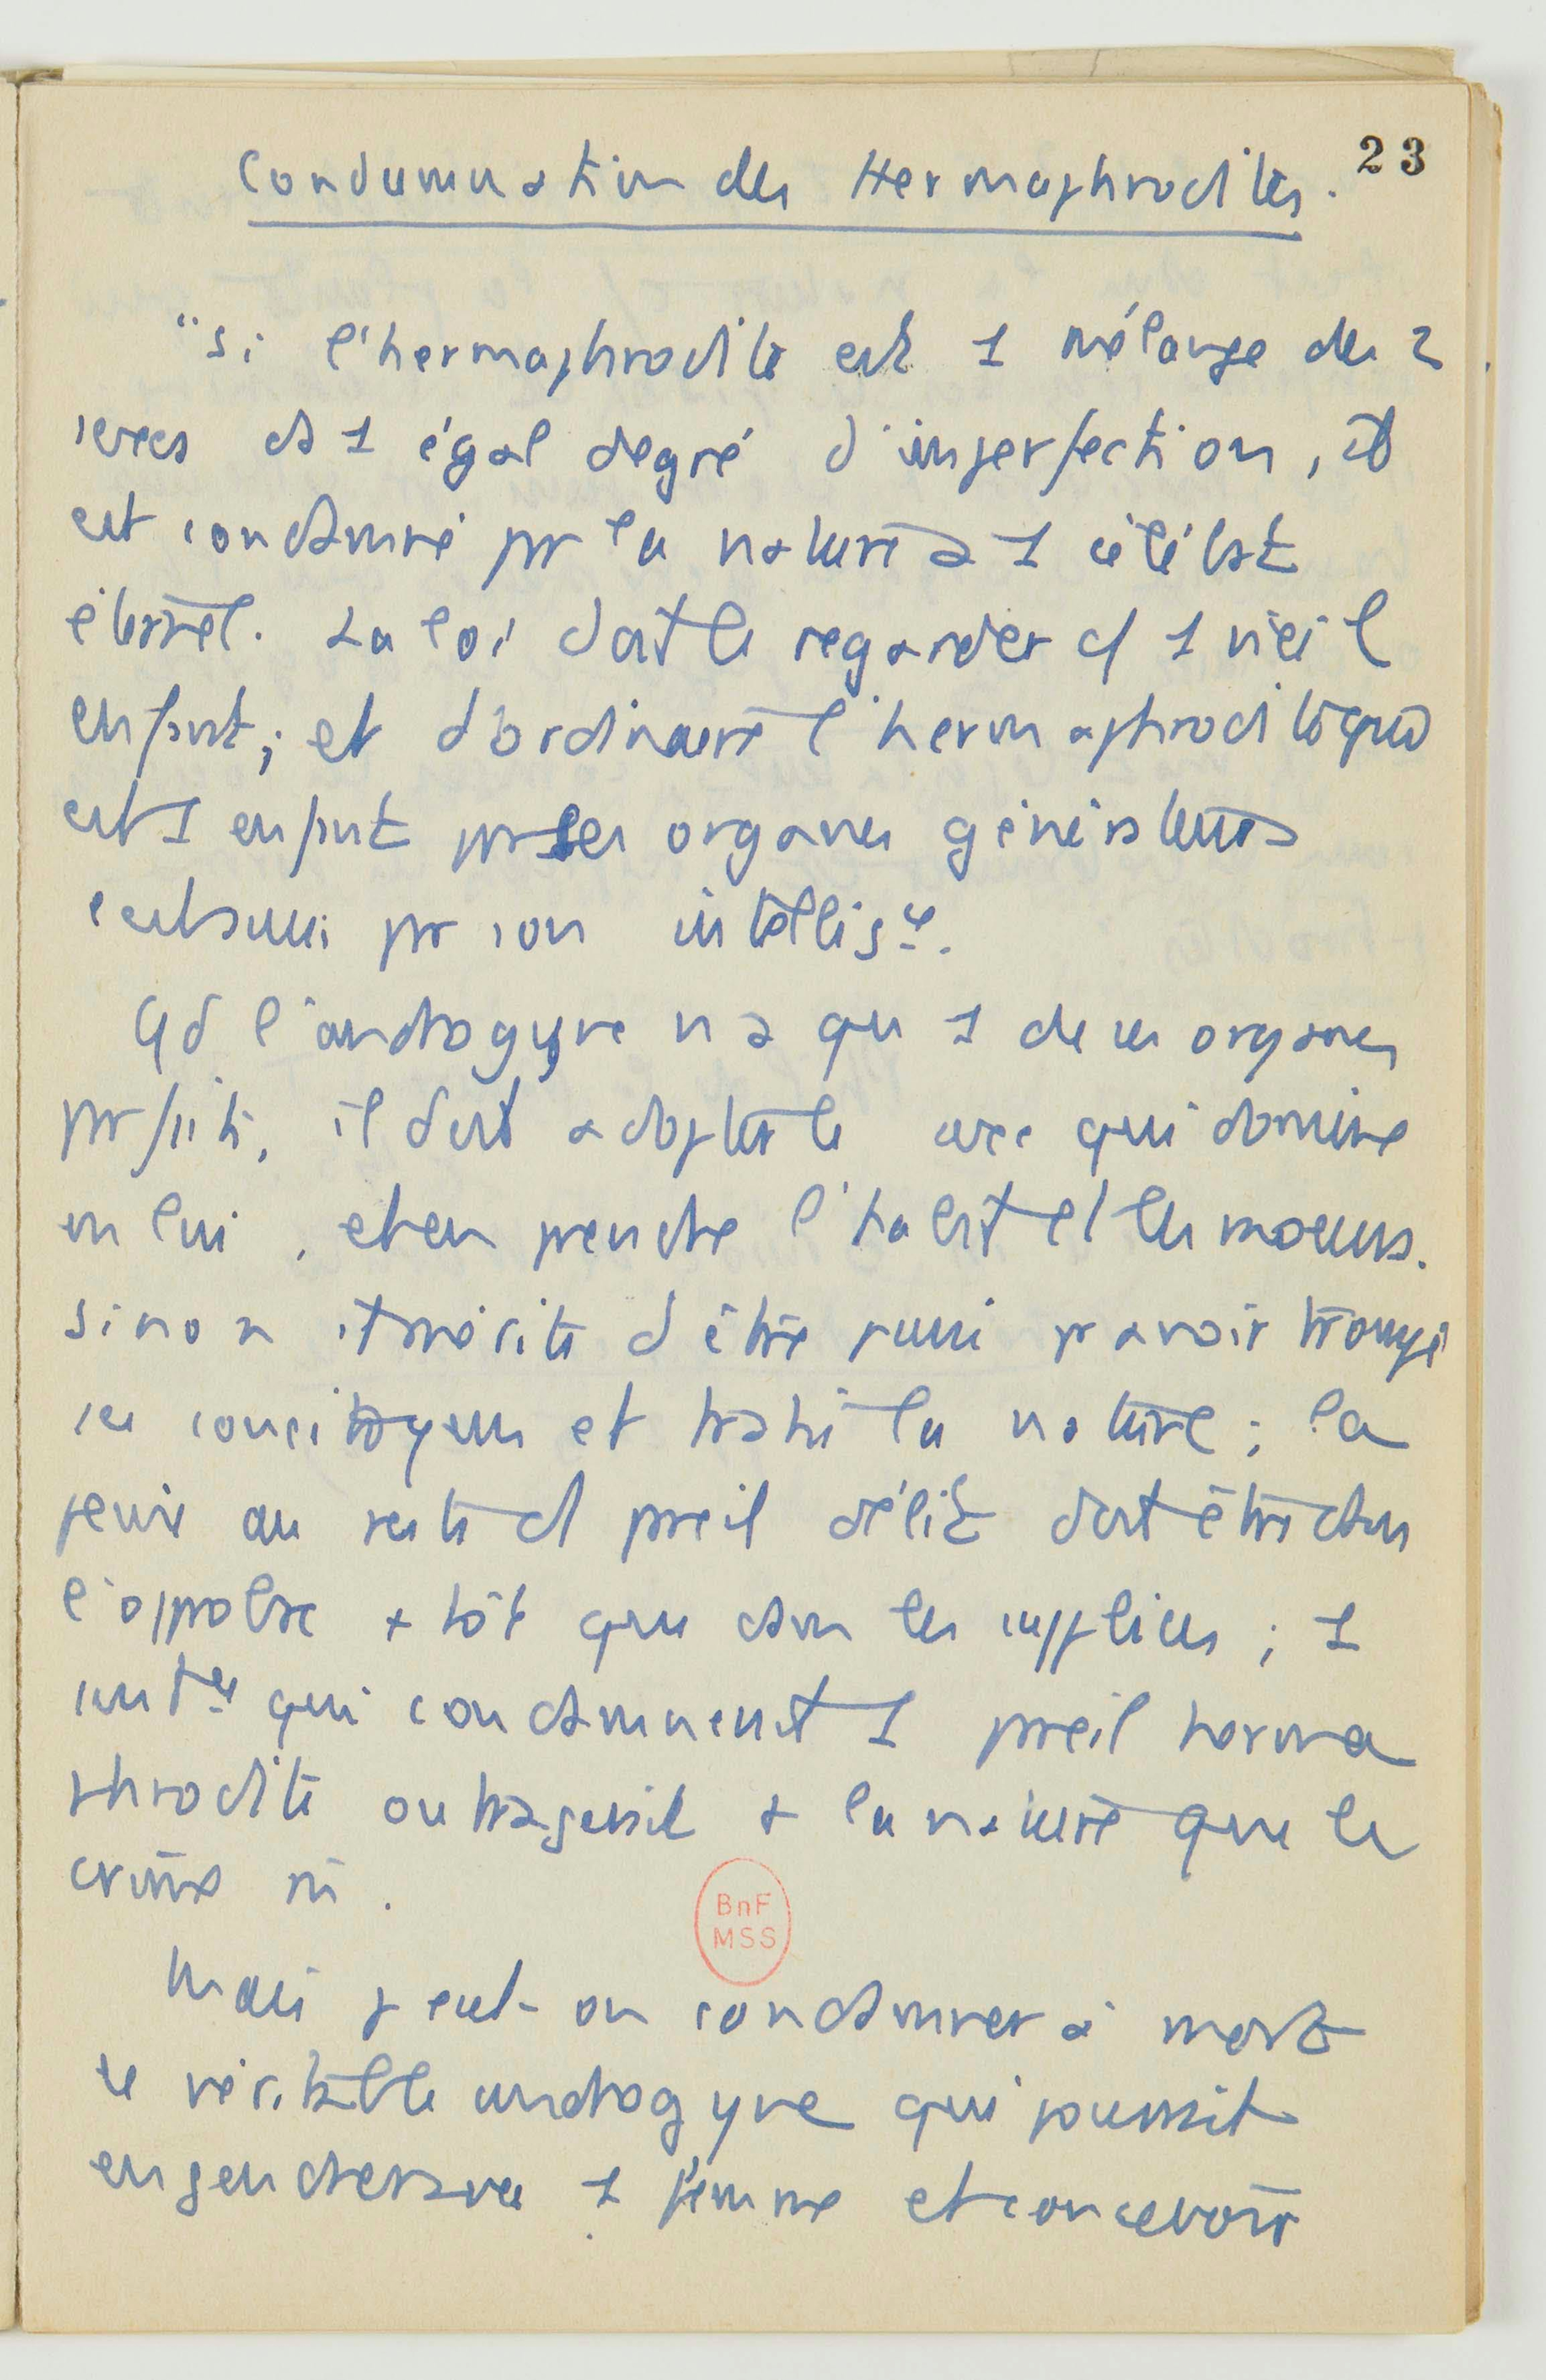 23
Condamnation des Hermaphrodites.
"si l'hermaphrodite est 1 mélange des 2
sexes ds 1 égal degré d'imperfection, il
est condamné par la nature à 1 célibat
éternel. La loi doit le regarder c/ 1 vieil
enfant; et d'ordinaire l'hermaphrodite qui
est 1 enfant par ses organes générateurs
l'est aussi par son intellig.ce.
Qd l'androgyne n'a qu'1 de ces organes
parfaits, il doit adopter le sexe qui domine
en lui, et en prendre l'habit et les moeurs.
sinon il mérite d'être puni pr avoir trompé
ses concitoyens et trahi la nature; la
peine au reste d'1 pareil délit doit être dans
l'opprobre + tôt que dans les supplices; 1
sent.ce qui condamnerait 1 pareil herma
phrodite outragerait + la nature que le
crime m̂.
Mais peut-on condamner à mort
le véritable androgyne qui pourrait
engendrer avec 1 femme et concevoir
BnF
MSS